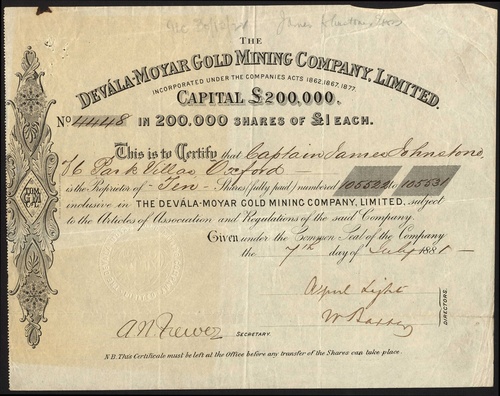 James Johnstone
THE
DEVÁLA-MOYAR GOLD MINING COMPANY, LIMITED.
INCORPORATED UNDER THE COMPANIES ACTS 1862, 1867, 1877.
CAPITAL £200,000,
No 4448 IN 200.000 SHARES OF £1 EACH.
This is to Certify that Captain James Johnstone,
86 Park Villas Oxford
is the Proprietor of Ten Shares (fully paid) numbered 105522 to 105531
inclusive in THE DEVÁLA-MOYAR GOLD MINING COMPANY, LIMITED. subject
to the Articles of Association and Regulations of the said Company.
Given under the Common Seal of the Company
the 7th day of July 1881
DIRECTORS.
SECRETARY.
N.B. This Certificate must be left at the Office before any transfer of the Shares can take place.